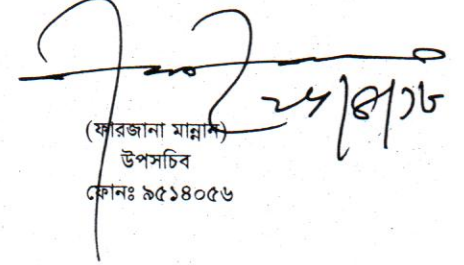 (ফারজানা মান্নান)
উপসচিব
ফোনঃ ৯৫১৪০৫৬